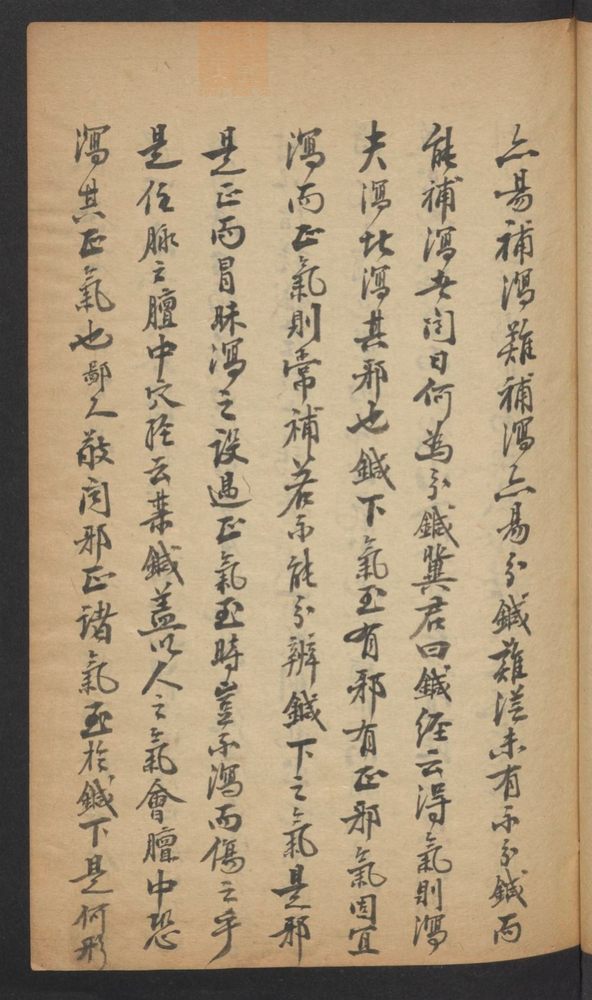 亦易補瀉難補瀉亦易分鍼難從未有不分鍼而
能補瀉者問曰何為分鍼龔君曰鍼經云得氣則瀉
夫瀉此瀉其邪也鍼下氣至有邪有正邪氣固宜
瀉而正氣則常補若不能分辨鍼下之氣是邪
是正而冒昧瀉之設遇正氣至時豈不瀉而傷之乎
是任脉之膻中穴經云禁鍼蓋以人之氣會膻中恐
瀉其正氣也鄙人敬問邪正諸氣至於鍼下是何形